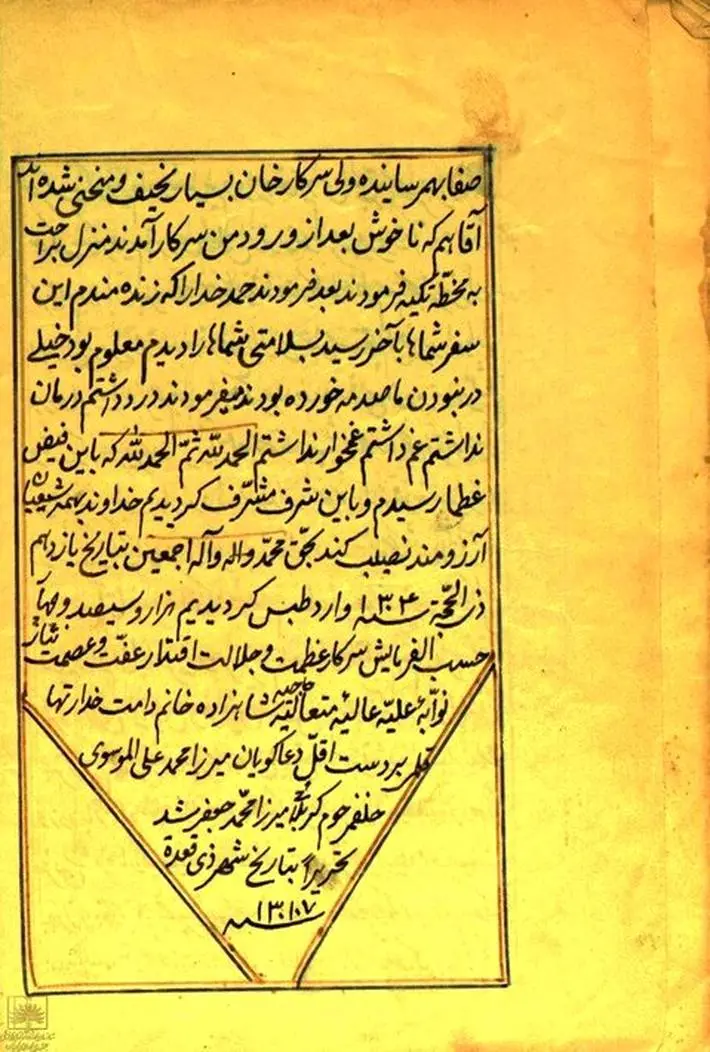 صفا بهمرسانیده ولی سرکار خان بسیار نحیف و منحنی شده‌اند
آقا هم که ناخوش بعد از ورود من سرکار آمدند منزل براحت
به مخطّه تکیه فرمودند بعد فرمودند حمد خدا را که زنده مندم این
سفر شماها بآخر رسید بسلامتی شماها را دیدم معلوم بود خیلی
در نبودن ما صدمه خورده بودند میفرمودند درد داشتم درمان
نداشتم غم داشتم غمخوار نداشتم الحمد لله ثمّ الحمد لله که باین فیض
عظما رسیدم و باین شرف مشرّف گردیدیم خداوند بهمه شیعیان
آرزومند نصیب کند بحق محمّد واله وآله اجمعین بتاریخ یازدهم
ذی الحجّة سنه ۱۳۰۴ وارد طبس گردیدیم هزار و سیصد و چهار
حسب الفرمایش سرکار عظمت و جلالت اقتدار عفّت و عصمت
نوّابه علیّه عالیهٔ متعالیّه حاجیه شاهزاده خانم دامت خدارتها
قلمی بر دست اقلّ دعاگویان میرزا محمد علی الموسوی
خلف مرحوم میرزا محمّد جعفر شد
تحریراً بتاریخ شهر ذی قعدة
سنه ۱۳۰۷